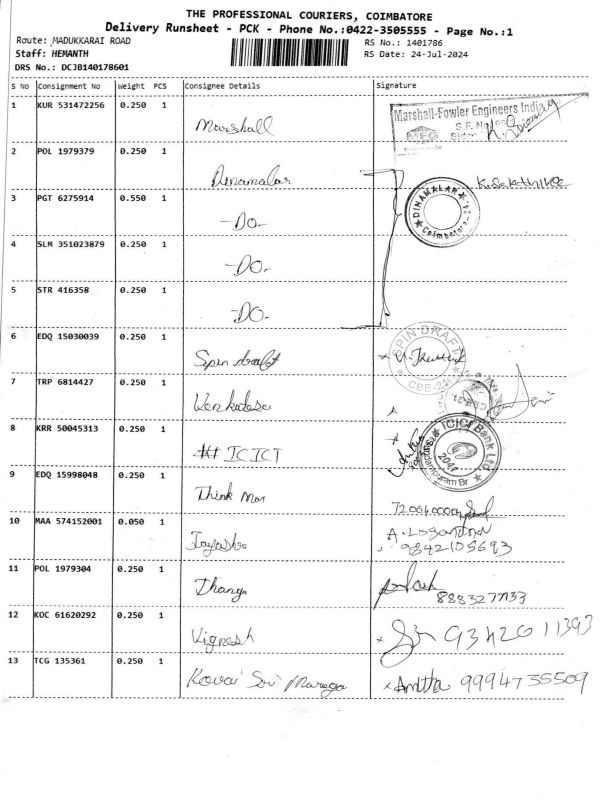 THE PROFESSIONAL COURIERS, COIMBATORE
Delivery Runsheet - PCK - Phone No.:0422-3505555 - Page No.:1
Route: MADUKKARAI ROAD
RS No.: 1401786
Staff: HEMANTH
RS Date: 24-Jul-2024
DRS No.: DCJB140178601
S No Consignment No Weight PCS Consignee Details Signature
1 KUR 531472256 0.250 1 Marshall
Marshall-Fowler Engineers India
S.F. No
MFE
2 POL 1979379 0.250 1 Dinamalar
DINAMALAR
Coimbatore
3 PGT 6275914 0.550 1 -DO-
4 SLM 351023879 0.250 1 -DO-
5 STR 416358 0.250 1 -DO-
6 EDQ 15030039 0.250 1 Spin draft
SPIN DRAFT
CBE-24
7 TRP 6814427 0.250 1 Venkatesa
8 KRR 50045313 0.250 1 ICICI
ICICI Bank Ltd.
2047
9 EDQ 15998048 0.250 1 Think
10 MAA 574152001 0.050 1 Jayashre
9842105693
11 POL 1979304 0.250 1 Thanga
8883277133
12 KOC 61620292 0.250 1 Vignesh
9342011393
13 TCG 135361 0.250 1 Kovai Sri Muruga
Anitha 9994735509